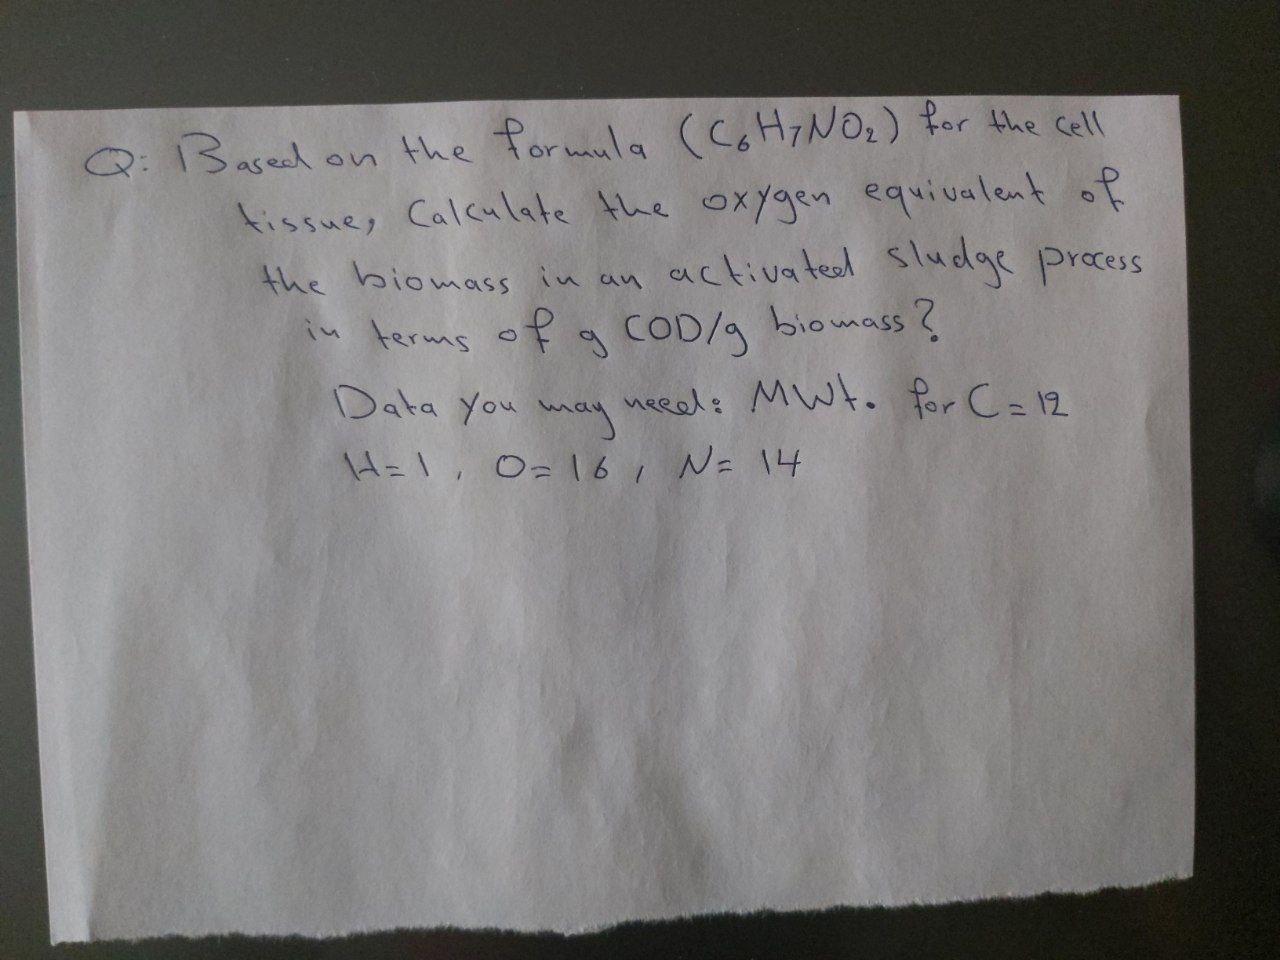 Q: Based on the formula (C₆H₇NO₂) for the cell
tissue, Calculate the oxygen equivalent of
the biomass in an activated sludge process
in terms of g COD/g biomass?
Data you may need: MWt. for C = 12
H=1, O=16, N=14